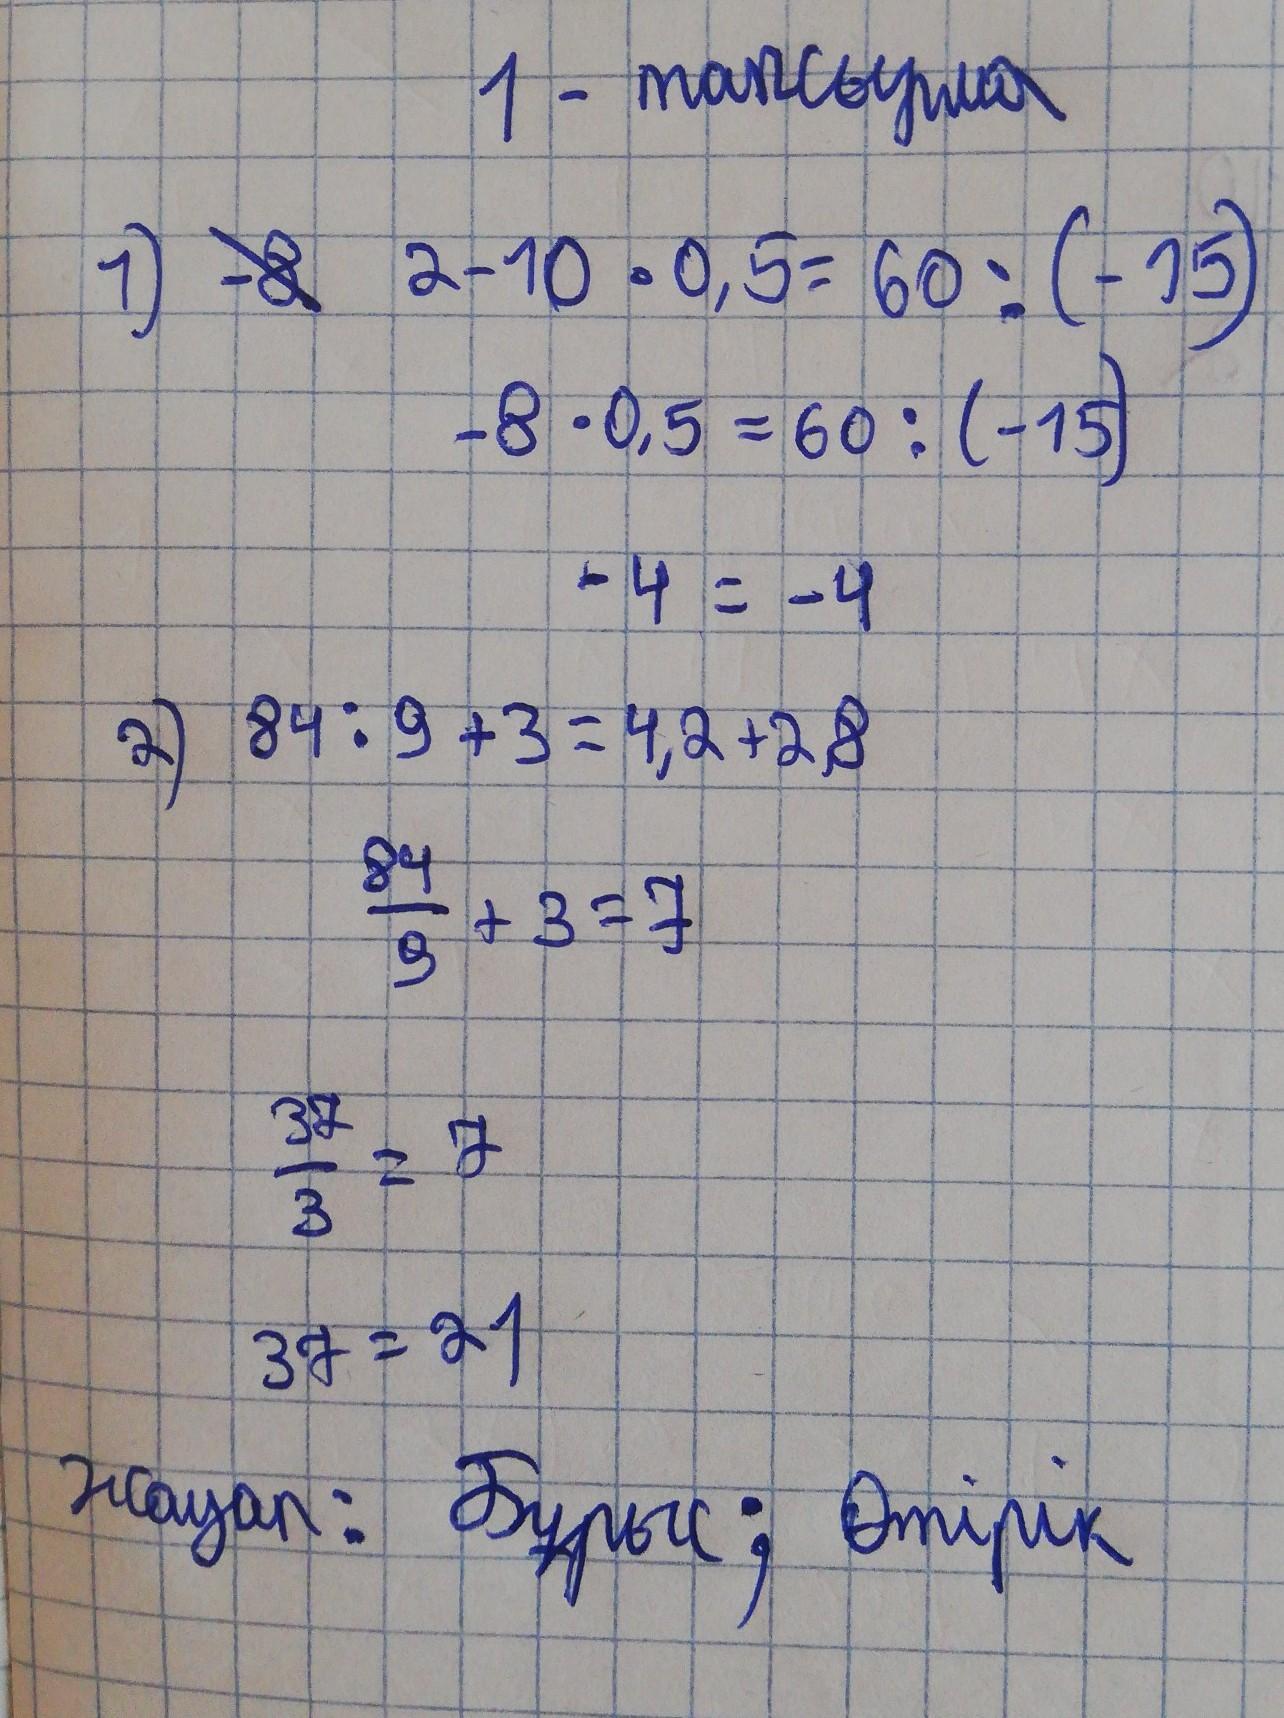 1 - тапсырма
1) 2-10·0,5=60:(-15)
-8·0,5=60:(-15)
-4=-4
2) 84:9+3=4,2+2,8
84/9+3=7
37/3=7
37=21
Жауап: Бұрыс; Өтірік